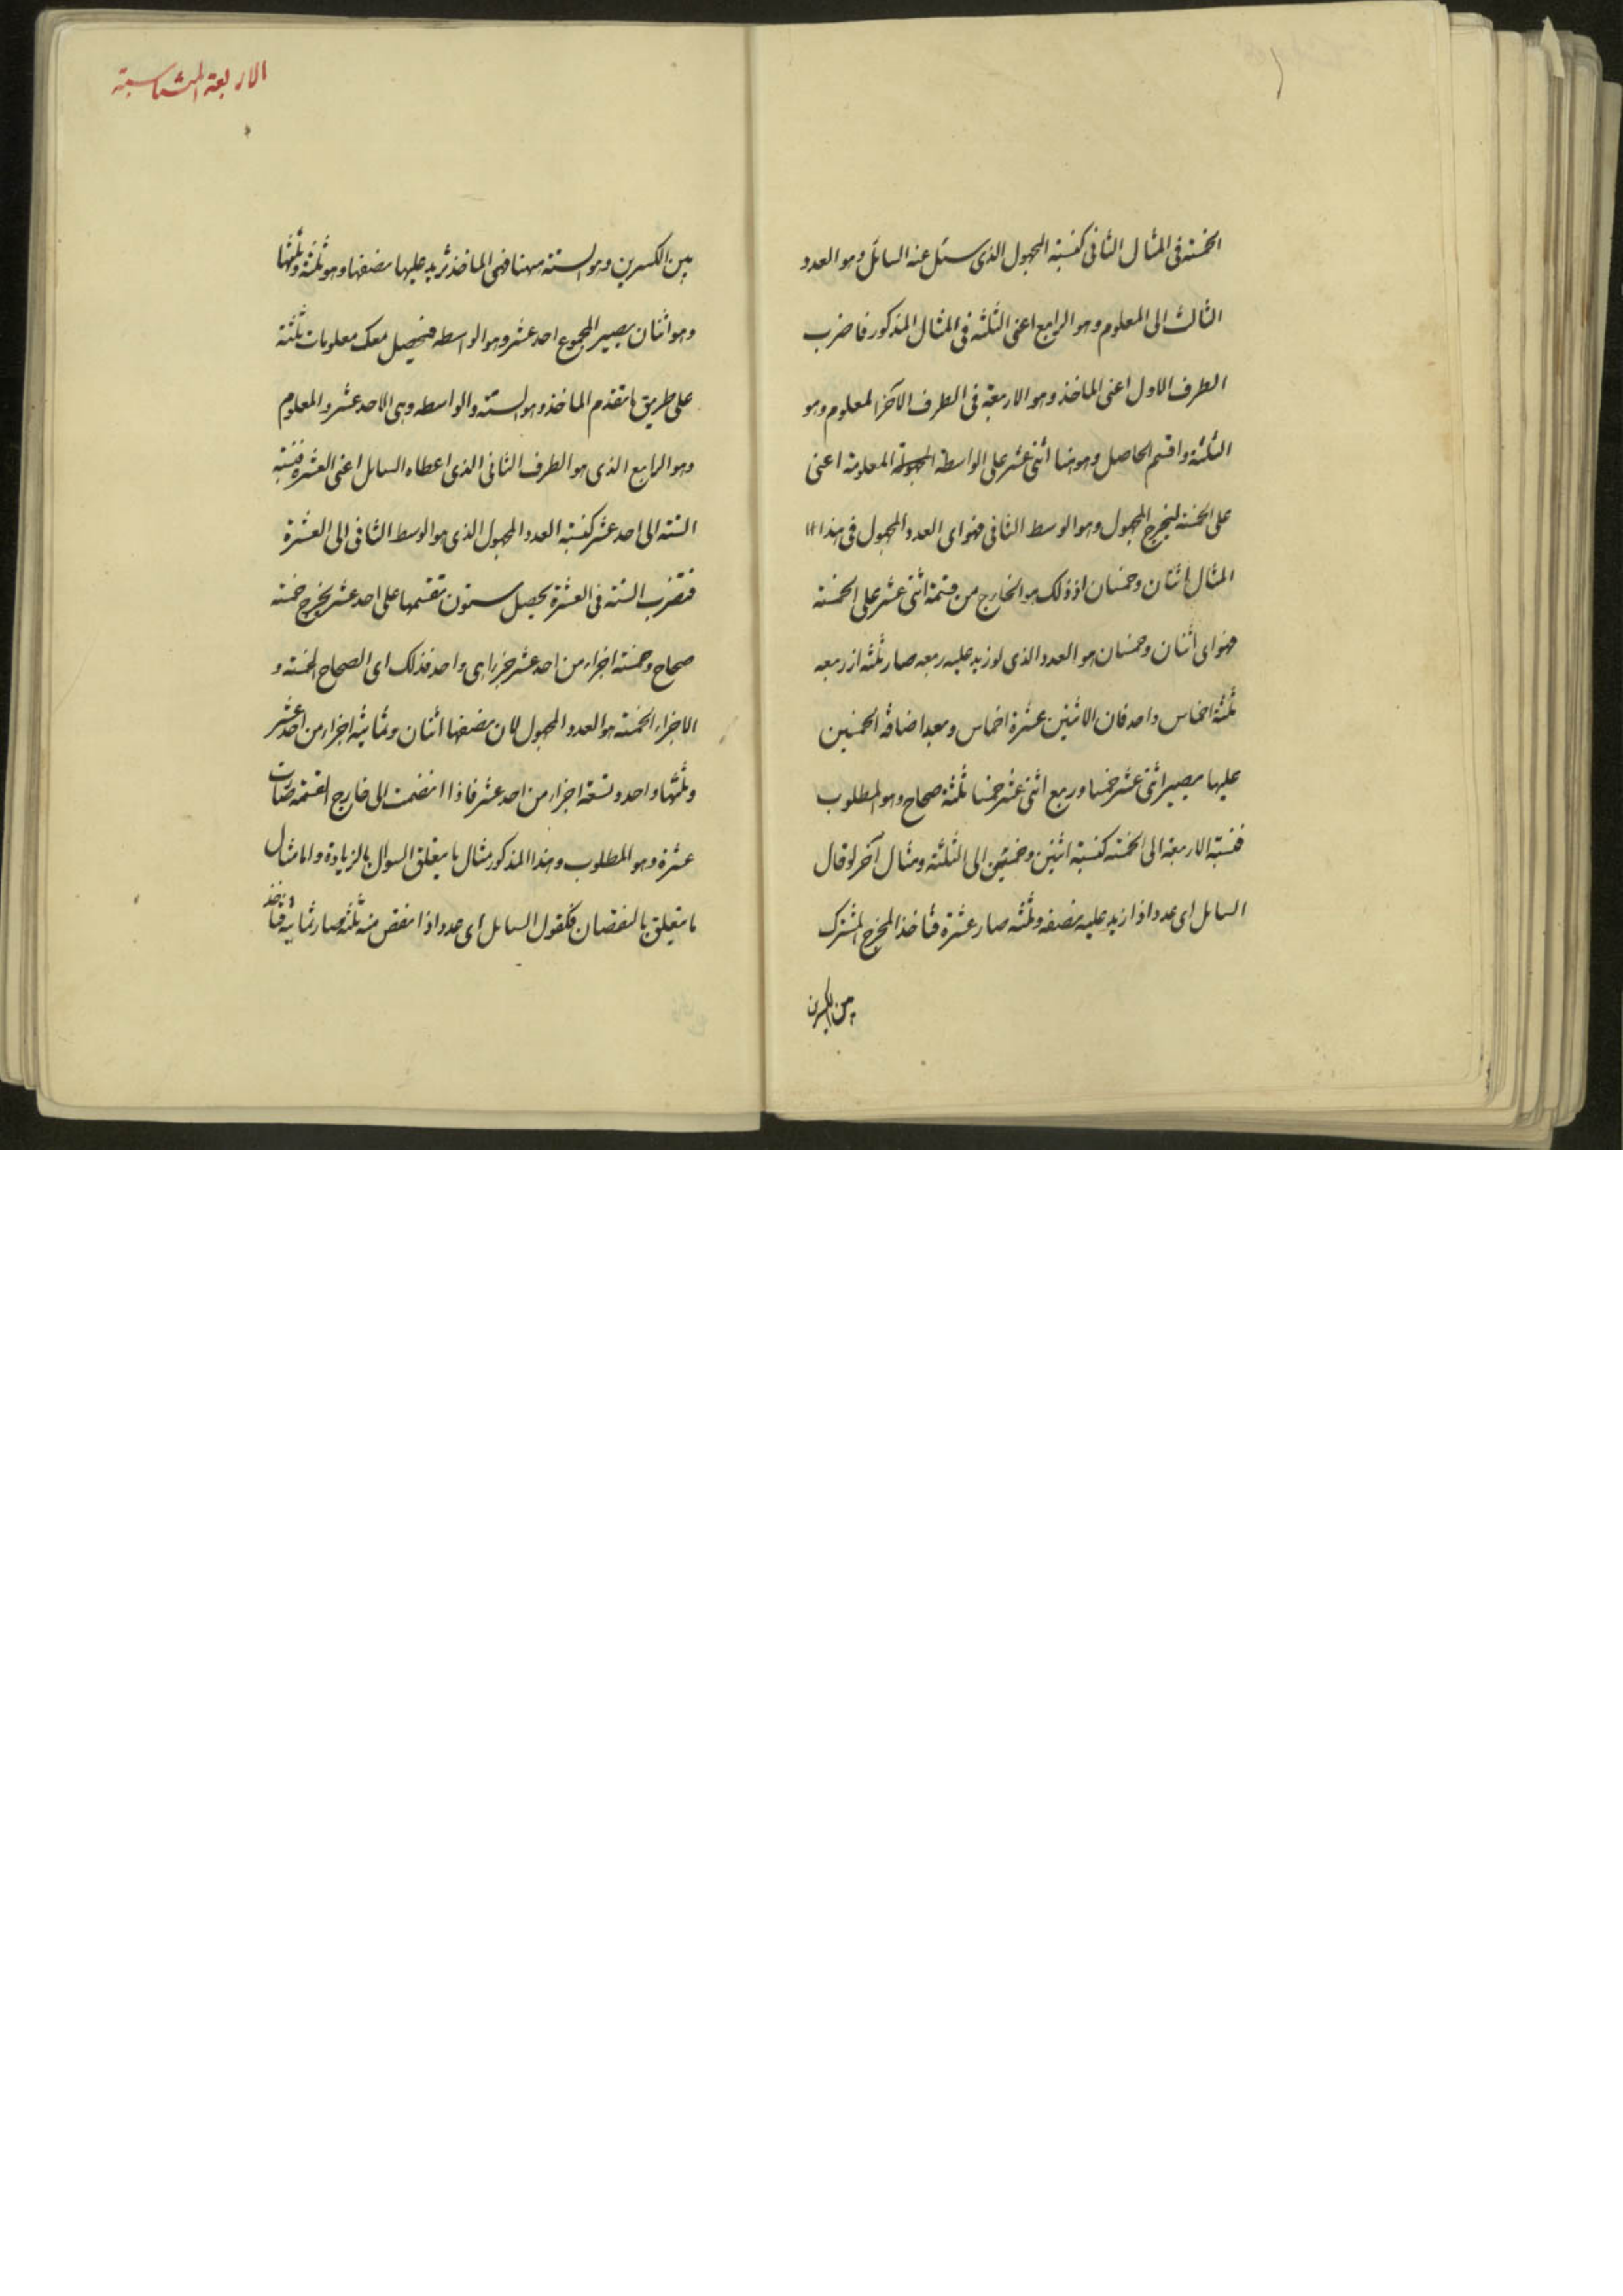 الخمسة فى المثال الثانى كنسبة المجهول الذى سئل عنه السائل وهو العدد
الثالث الى المعلوم وهو الرابع اعنى الثلثه فى المثال المذكور فاضرب
الطرف الاول اعنى الماخذ وهو الاربعة فى الطرف الآخر المعلوم وهو
الثلثة واقسم الحاصل وهو هنا اثنى عشر على الواسطة المعلومة اعنى
على الخمسة ليخرج المجهول وهو الوسط الثانى فهو اى العدد المجهول فى هذا
المثال اثنان وخمسان اذ ذلك هو الخارج من قسمة اثنى عشر على الخمسة
فهو اى اثنان وخمسان هو العدد الذى لو زيد عليه ربعه صار ثلثه از ربعه
ثلثة اخماس واحد فان الاثنين عشرة اخماس وبعد اضافة الخمسين
عليها يصير اثنى عشر خمسا وربع اثنى عشر خمسا ثلثة صحاح وهو المطلوب
فنسبة الاربعة الى الخمسة كنسبة اثنين وخمسين الى الثلثة ومثال آخر لو قال
السايل اى عدد اذا زيد عليه نصفه وثلثه صار عشرة فتأخذ المخرج المشترك
بين الكسرين
الاربعة المتناسبة
بين الكسرين وهو الستة ههنا فهى الماخذ نزيد عليها نصفها وهو ثلثة وثلثها
وهو اثنان يصير المجموع احد عشر وهو الواسطه فيحصل معك معلومات ثلثة
على طريق ما تقدم الماخذ وهو الستة والواسطه وهى الاحد عشر والمعلوم
وهو الرابع الذى هو الطرف الثانى الذى اعطاه السايل اعنى العشرة فنسبة
الستة الى احد عشر كنسبة العدد المجهول الذى هو الوسط الثانى الى العشرة
فتضرب الستة فى العشرة يحصل ستون تقسمها على احد عشر يخرج خمسة
صحاح وخمسة اجزاء من احد عشر جزءا هى واحد فذلك اى الصحاح الخمسة و
الاجزاء الخمسة هو العدد المجهول لان نصفها اثنان وثمانية اجزاء من احد عشر
وثلثها واحد وتسعة اجزاء من احد عشر فاذا انضمت الى خارج القسمة صارت
عشرة وهو المطلوب وهذا المذكور مثال ما يتعلق السوال بالزيادة واما مثال
ما يتعلق بالنقصان فكقول السايل اى عدد اذا نقص منه ثلثه صار ثمانية فتأخذ